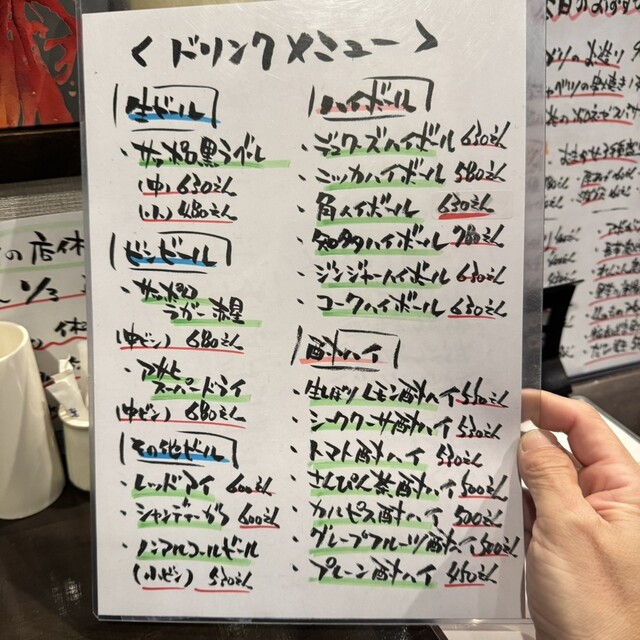 <ドリンクメニュー>
生ビール
・サッポロ黒ラベル
(中) 630えん
(小) 480えん
ビンビール
・サッポロ
ラガー赤星
(中ビン) 680えん
・アサヒ
スーパードライ
(中ビン) 680えん
その他ビール
・レッドアイ 600えん
・シャンディーガフ 600えん
・ノンアルコールビール
(小ビン) 530えん
ハイボール
・デュワーズハイボール 630えん
・ニッカハイボール 580えん
・角ハイボール 630えん
・知多ハイボール 780えん
・ジンジャーハイボール 630えん
・コークハイボール 630えん
酎ハイ
・生しぼりレモン酎ハイ 550えん
・シークワーサー酎ハイ 530えん
・トマト酎ハイ 530えん
・さんぴん茶酎ハイ 500えん
・カルピス酎ハイ 500えん
・グレープフルーツ酎ハイ 500えん
・プレーン酎ハイ 450えん
の店休